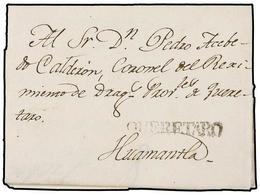 Al Sr. Dn. Pedro Acebe-
do Calderón, Coronel del Rexi-
miento de Dragˢ Provˡᵉˢ de Quere-
taro.
QUERETARO
Huamantla.